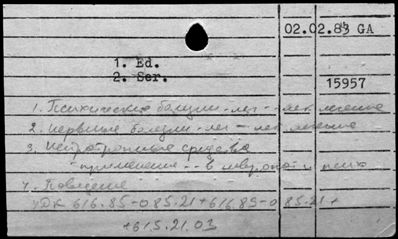 02.02.83 GA
1. Ed.
2. Ser.
15957
1. Психические болезни - леч - лек. лечение
2. Нервные болезни - леч - лек. лечение
3. Нейротропные средства
применение - - в и псих
4. Поведение
УДК 616.85-085.21+616.89-085.21+
+615.21.03